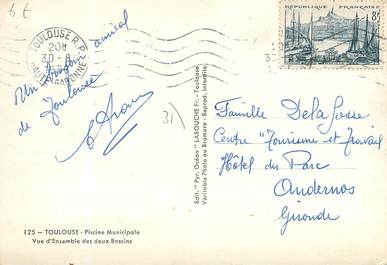 6 €
TOULOUSE R.P.
20H
30-8
HAUTE-GARONNE
REPUBLIQUE FRANÇAISE
8F
Un bonjour amical
de Toulouse
31)
Edit. "Pyr. Océan" LABOUCHE Fr. - Toulouse
Véritable Photo au Bromure - Reprod. Interdite
Famille Delafosse
Centre "Tourisme et Travail
Hôtel du Parc
Andernos
Gironde
125 - TOULOUSE - Piscine Municipale
Vue d'Ensemble des deux Bassins